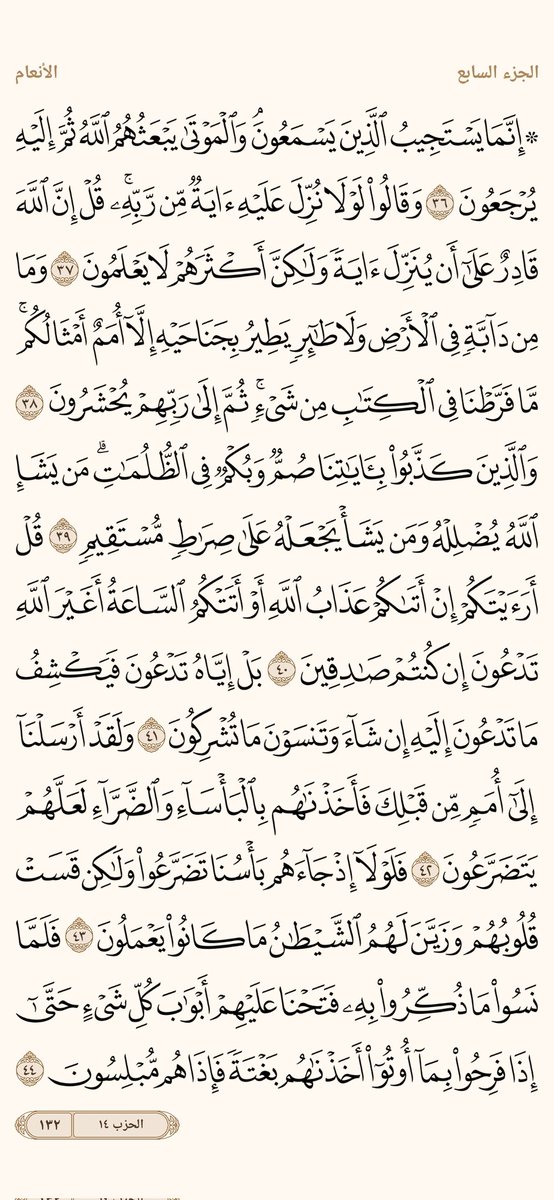 الجزء السابع
الأنعام
۞ إِنَّمَا يَسْتَجِيبُ ٱلَّذِينَ يَسْمَعُونَۘ وَٱلْمَوْتَىٰ يَبْعَثُهُمُ ٱللَّهُ ثُمَّ إِلَيْهِ
يُرْجَعُونَ ٣٦ وَقَالُوا۟ لَوْلَا نُزِّلَ عَلَيْهِ ءَايَةٌ مِّن رَّبِّهِۦۚ قُلْ إِنَّ ٱللَّهَ
قَادِرٌ عَلَىٰٓ أَن يُنَزِّلَ ءَايَةً وَلَـٰكِنَّ أَكْثَرَهُمْ لَا يَعْلَمُونَ ٣٧ وَمَا
مِن دَآبَّةٍ فِى ٱلْأَرْضِ وَلَا طَـٰٓئِرٍ يَطِيرُ بِجَنَاحَيْهِ إِلَّآ أُمَمٌ أَمْثَالُكُمۚ
مَّا فَرَّطْنَا فِى ٱلْكِتَـٰبِ مِن شَىْءٍۚ ثُمَّ إِلَىٰ رَبِّهِمْ يُحْشَرُونَ ٣٨
وَٱلَّذِينَ كَذَّبُوا۟ بِـَٔايَـٰتِنَا صُمٌّ وَبُكْمٌ فِى ٱلظُّلُمَـٰتِۗ مَن يَشَإِ
ٱللَّهُ يُضْلِلْهُ وَمَن يَشَأْ يَجْعَلْهُ عَلَىٰ صِرَٰطٍ مُّسْتَقِيمٍ ٣٩ قُلْ
أَرَءَيْتَكُمْ إِنْ أَتَىٰكُمْ عَذَابُ ٱللَّهِ أَوْ أَتَتْكُمُ ٱلسَّاعَةُ أَغَيْرَ ٱللَّهِ
تَدْعُونَ إِن كُنتُمْ صَـٰدِقِينَ ٤٠ بَلْ إِيَّاهُ تَدْعُونَ فَيَكْشِفُ
مَا تَدْعُونَ إِلَيْهِ إِن شَآءَ وَتَنسَوْنَ مَا تُشْرِكُونَ ٤١ وَلَقَدْ أَرْسَلْنَآ
إِلَىٰٓ أُمَمٍ مِّن قَبْلِكَ فَأَخَذْنَـٰهُم بِٱلْبَأْسَآءِ وَٱلضَّرَّآءِ لَعَلَّهُمْ
يَتَضَرَّعُونَ ٤٢ فَلَوْلَآ إِذْ جَآءَهُم بَأْسُنَا تَضَرَّعُوا۟ وَلَـٰكِن قَسَتْ
قُلُوبُهُمْ وَزَيَّنَ لَهُمُ ٱلشَّيْطَـٰنُ مَا كَانُوا۟ يَعْمَلُونَ ٤٣ فَلَمَّا
نَسُوا۟ مَا ذُكِّرُوا۟ بِهِۦ فَتَحْنَا عَلَيْهِمْ أَبْوَٰبَ كُلِّ شَىْءٍ حَتَّىٰٓ
إِذَا فَرِحُوا۟ بِمَآ أُوتُوٓا۟ أَخَذْنَـٰهُم بَغْتَةً فَإِذَا هُم مُّبْلِسُونَ ٤٤
الحزب ١٤
١٣٢